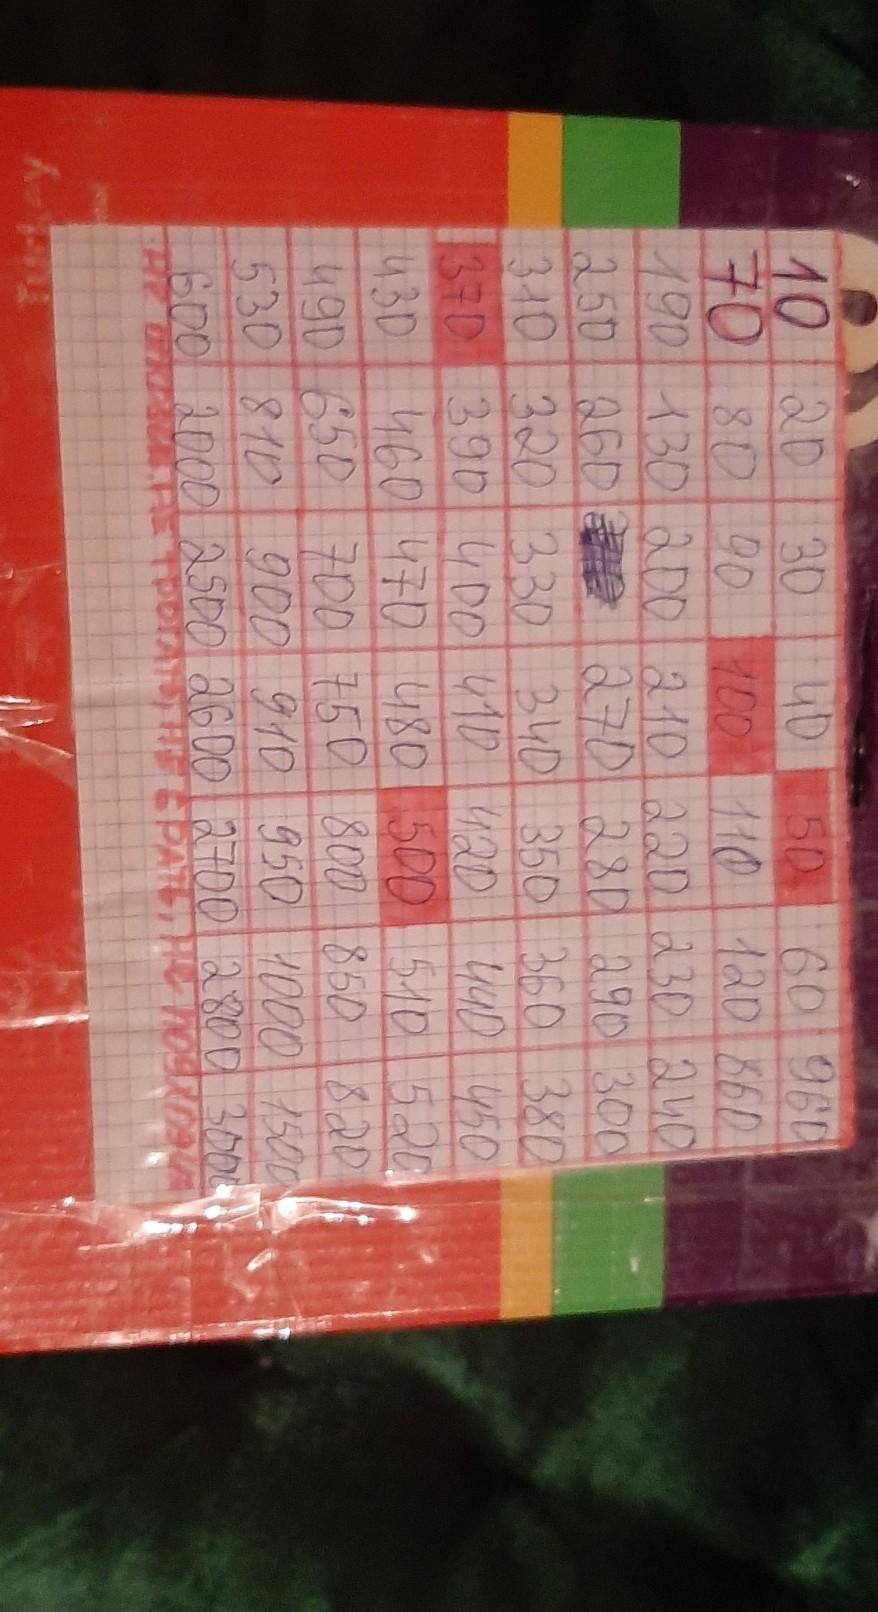 10 20 30 40 50 60 960
70 80 90 100 110 120 860
190 130 200 210 220 230 240
250 260 270 280 290 300
310 320 330 340 350 360 380
370 390 400 410 420 440 450
430 460 470 480 500 510 520
490 650 700 750 800 850 820
530 810 900 910 950 1000 1500
600 2000 2500 2600 2700 2800 3000
не трогать, не брать, не
Turkey